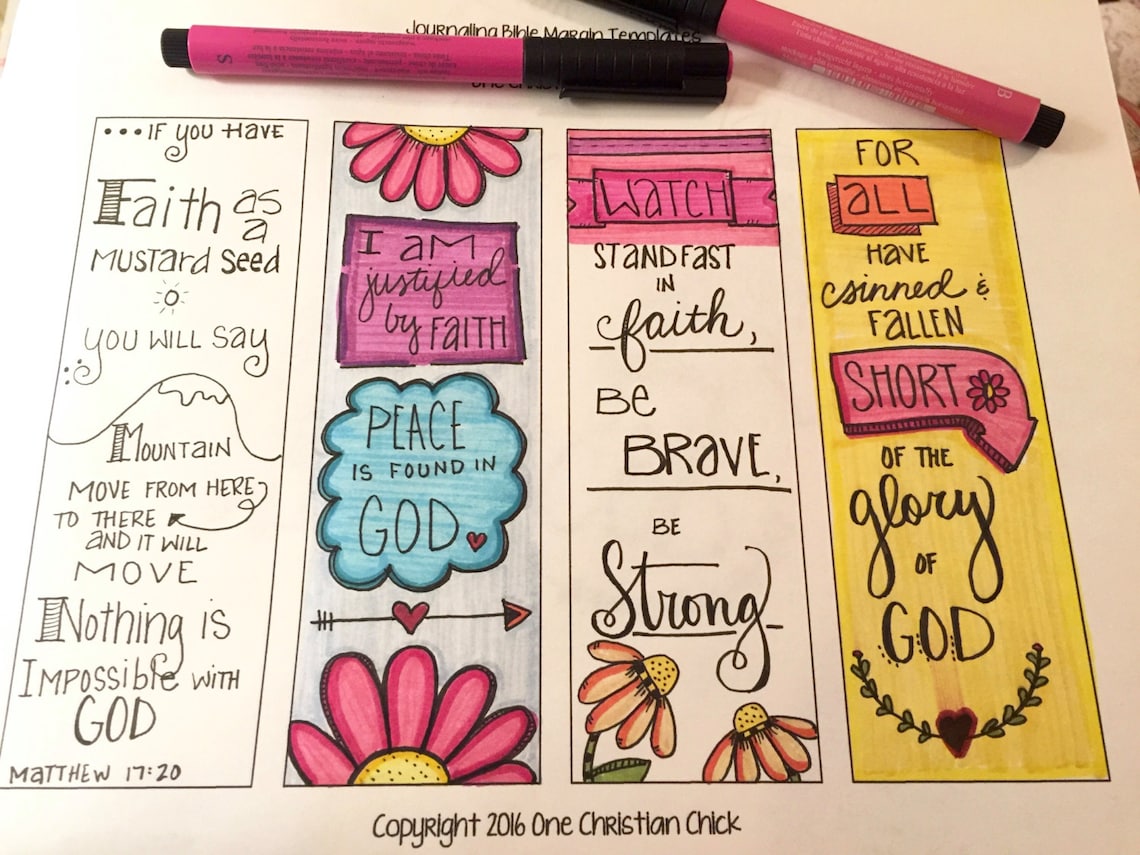 Journaling Bible Margin Templates
S
B
•••IF YOU HAVE
Faith as
a
MUSTARD SEED
YOU WILL SAY
:
MOUNTAIN
MOVE FROM HERE
TO THERE
AND IT WILL
MOVE
Nothing is
IMPOSSIBLE WITH
GOD
MATTHEW 17:20
I AM
justified
by FAITH
PEACE
IS FOUND IN
GOD.
WATCH
STAND FAST
IN
faith,
BE
BRAVE,
BE
Strong
FOR
ALL
HAVE
csinned &
FALLEN
SHORT
OF THE
glory
OF
G:O:D
Copyright 2016 One Christian Chick